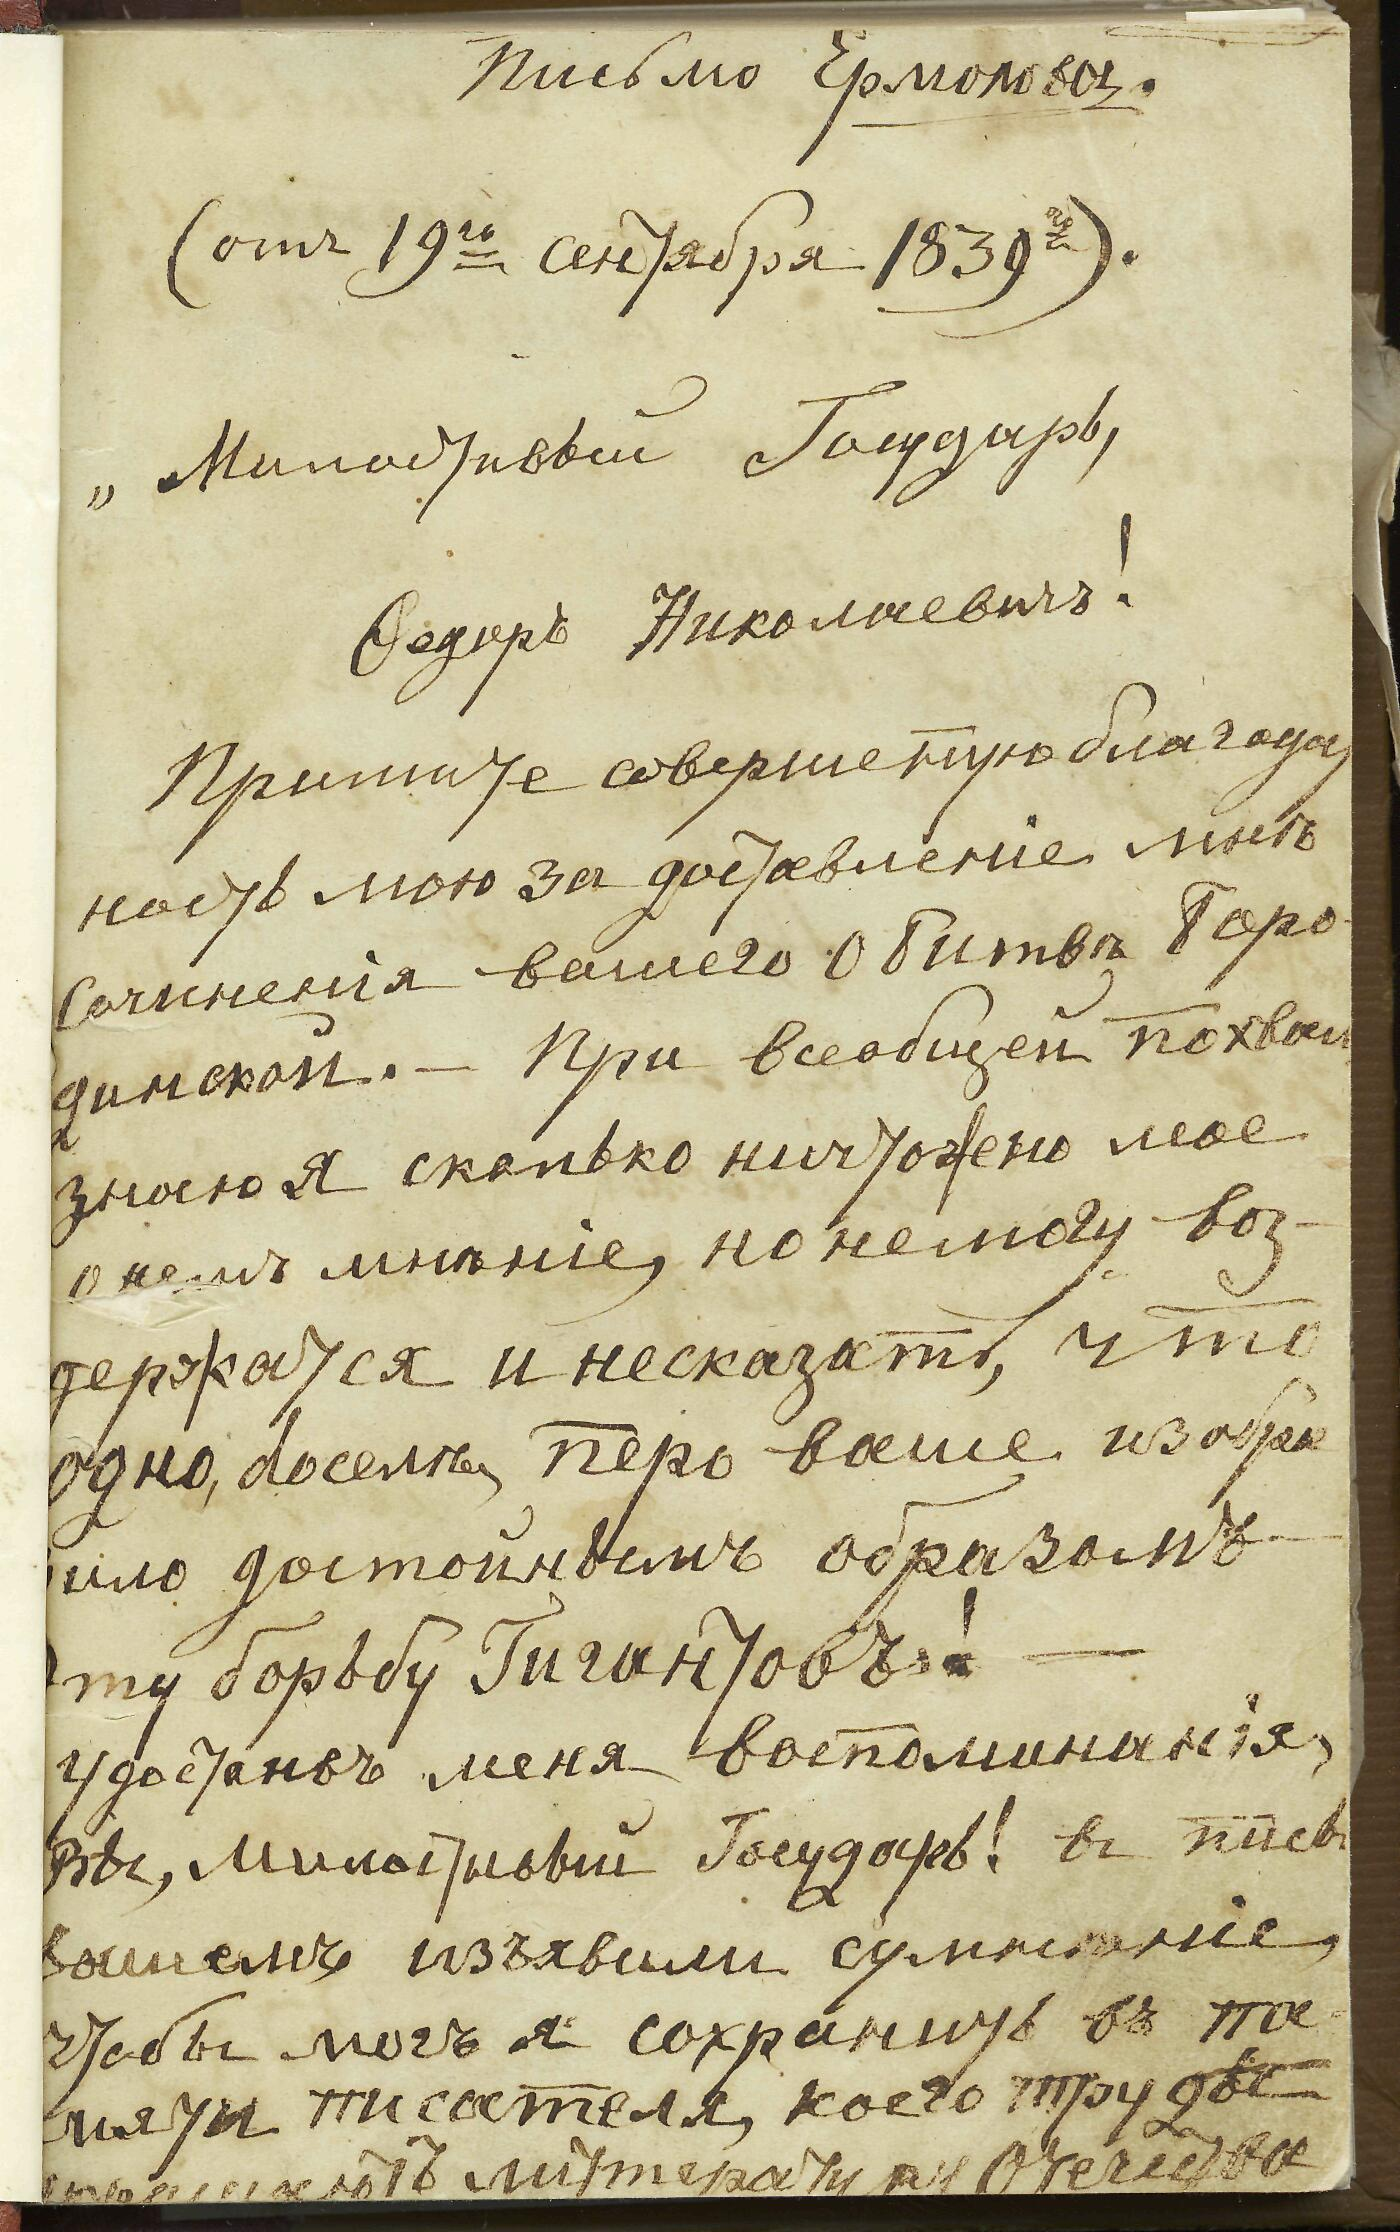 Письмо Ермолова.
(отъ 19го сентября 1839го).
„Милостивый Государь,
Ѳедоръ Николаевичъ!
Примите совершенную благодар
ность мою за доставленіе мнѣ
сочиненія вашего о битвѣ Боро
динской. — При всеобщей похвал
знаю я сколько ничтожено мое
о немъ мнѣніе, но немогу воз-
держатся и несказать, что
одно, доселѣ, перо ваше изобра
зило достойнымъ образомъ
Эту борьбу Гигантовъ! —
Удостоивъ меня воспоминанія,
Вы, Милостивый Государь! въ письм
вашемъ изъявили сумнѣніе,
чтобы могъ я сохранить въ па-
мяти писателя, коего труды
украшаютъ литературу Отечества